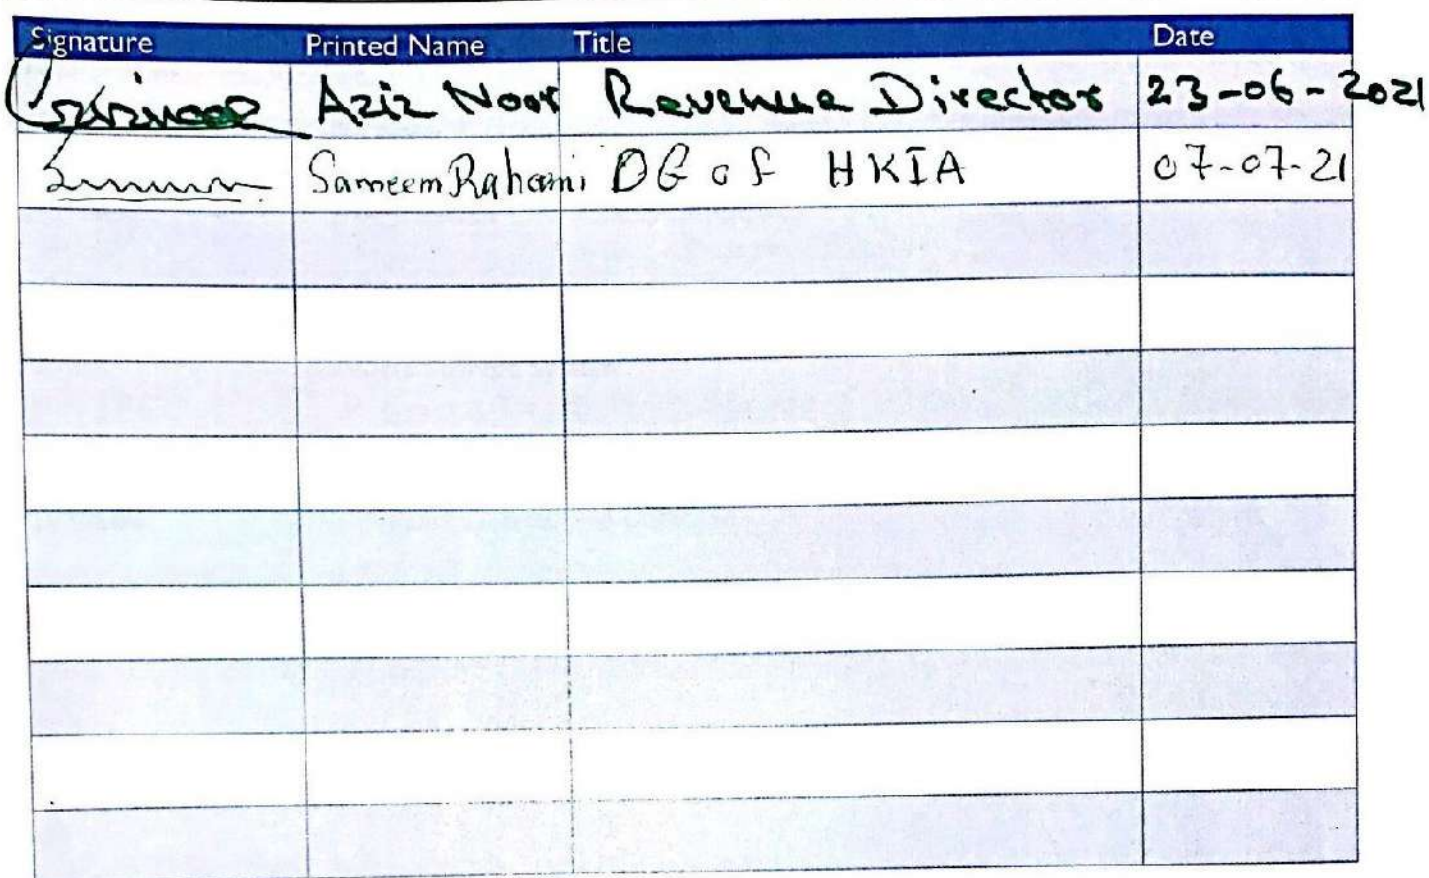 Signature Printed Name Title Date
Aziz Noor Revenue Director 23-06-2021
Sameem Rahami DG of HKIA 07-07-21